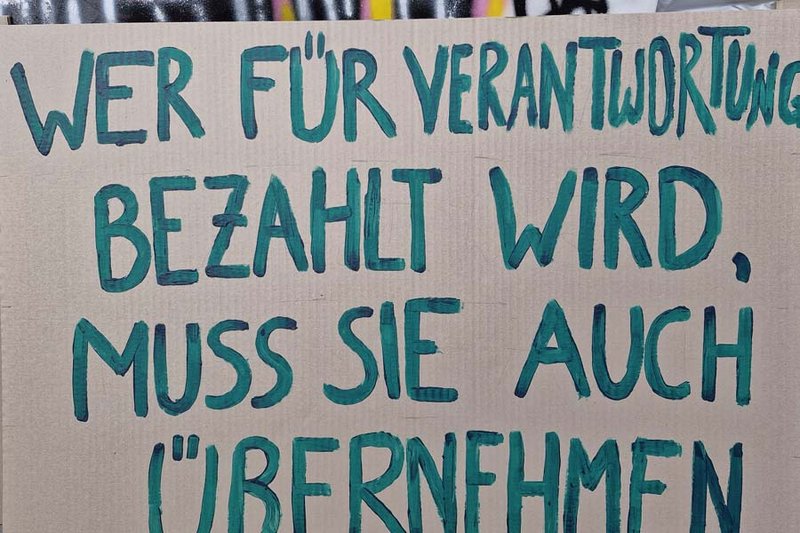 WER FÜR VERANTWORTUNG
BEZAHLT WIRD,
MUSS SIE AUCH
ÜBERNEHMEN